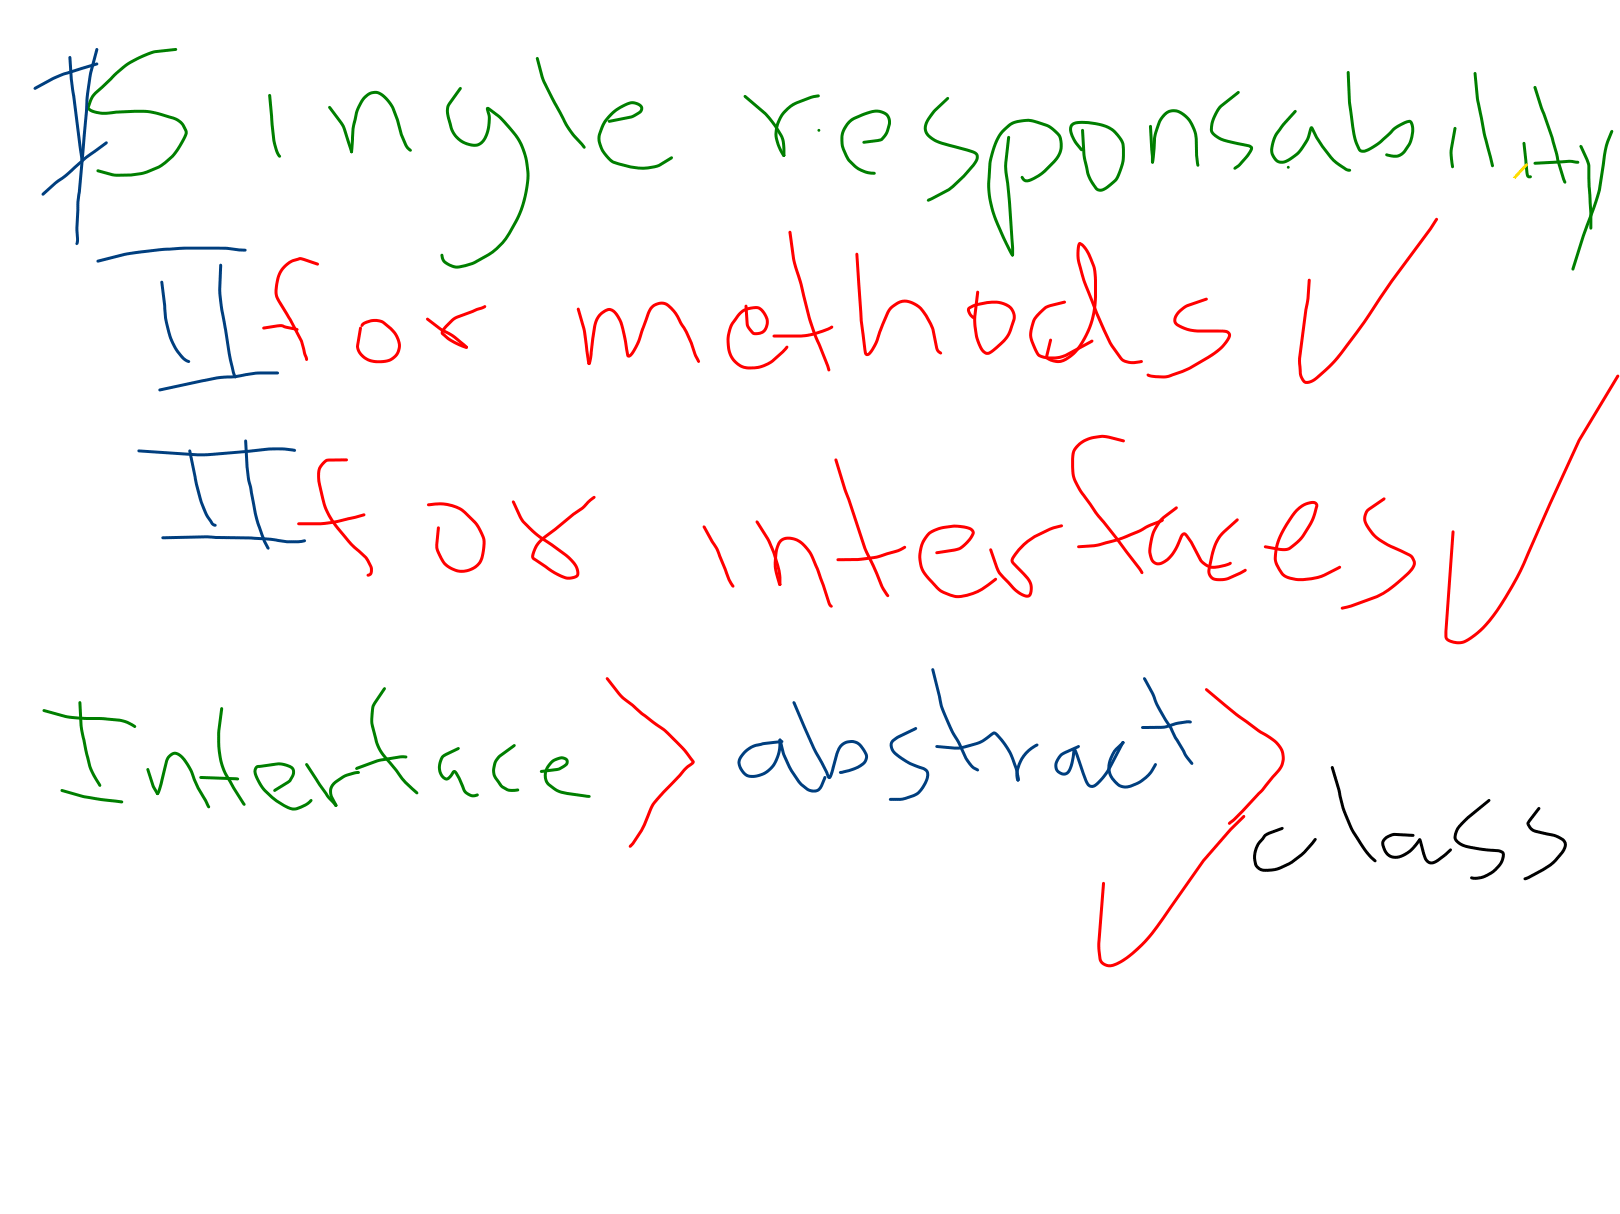 Single responsability
II for methods ✓
II for interfaces ✓
Interface > abstract > class ✓